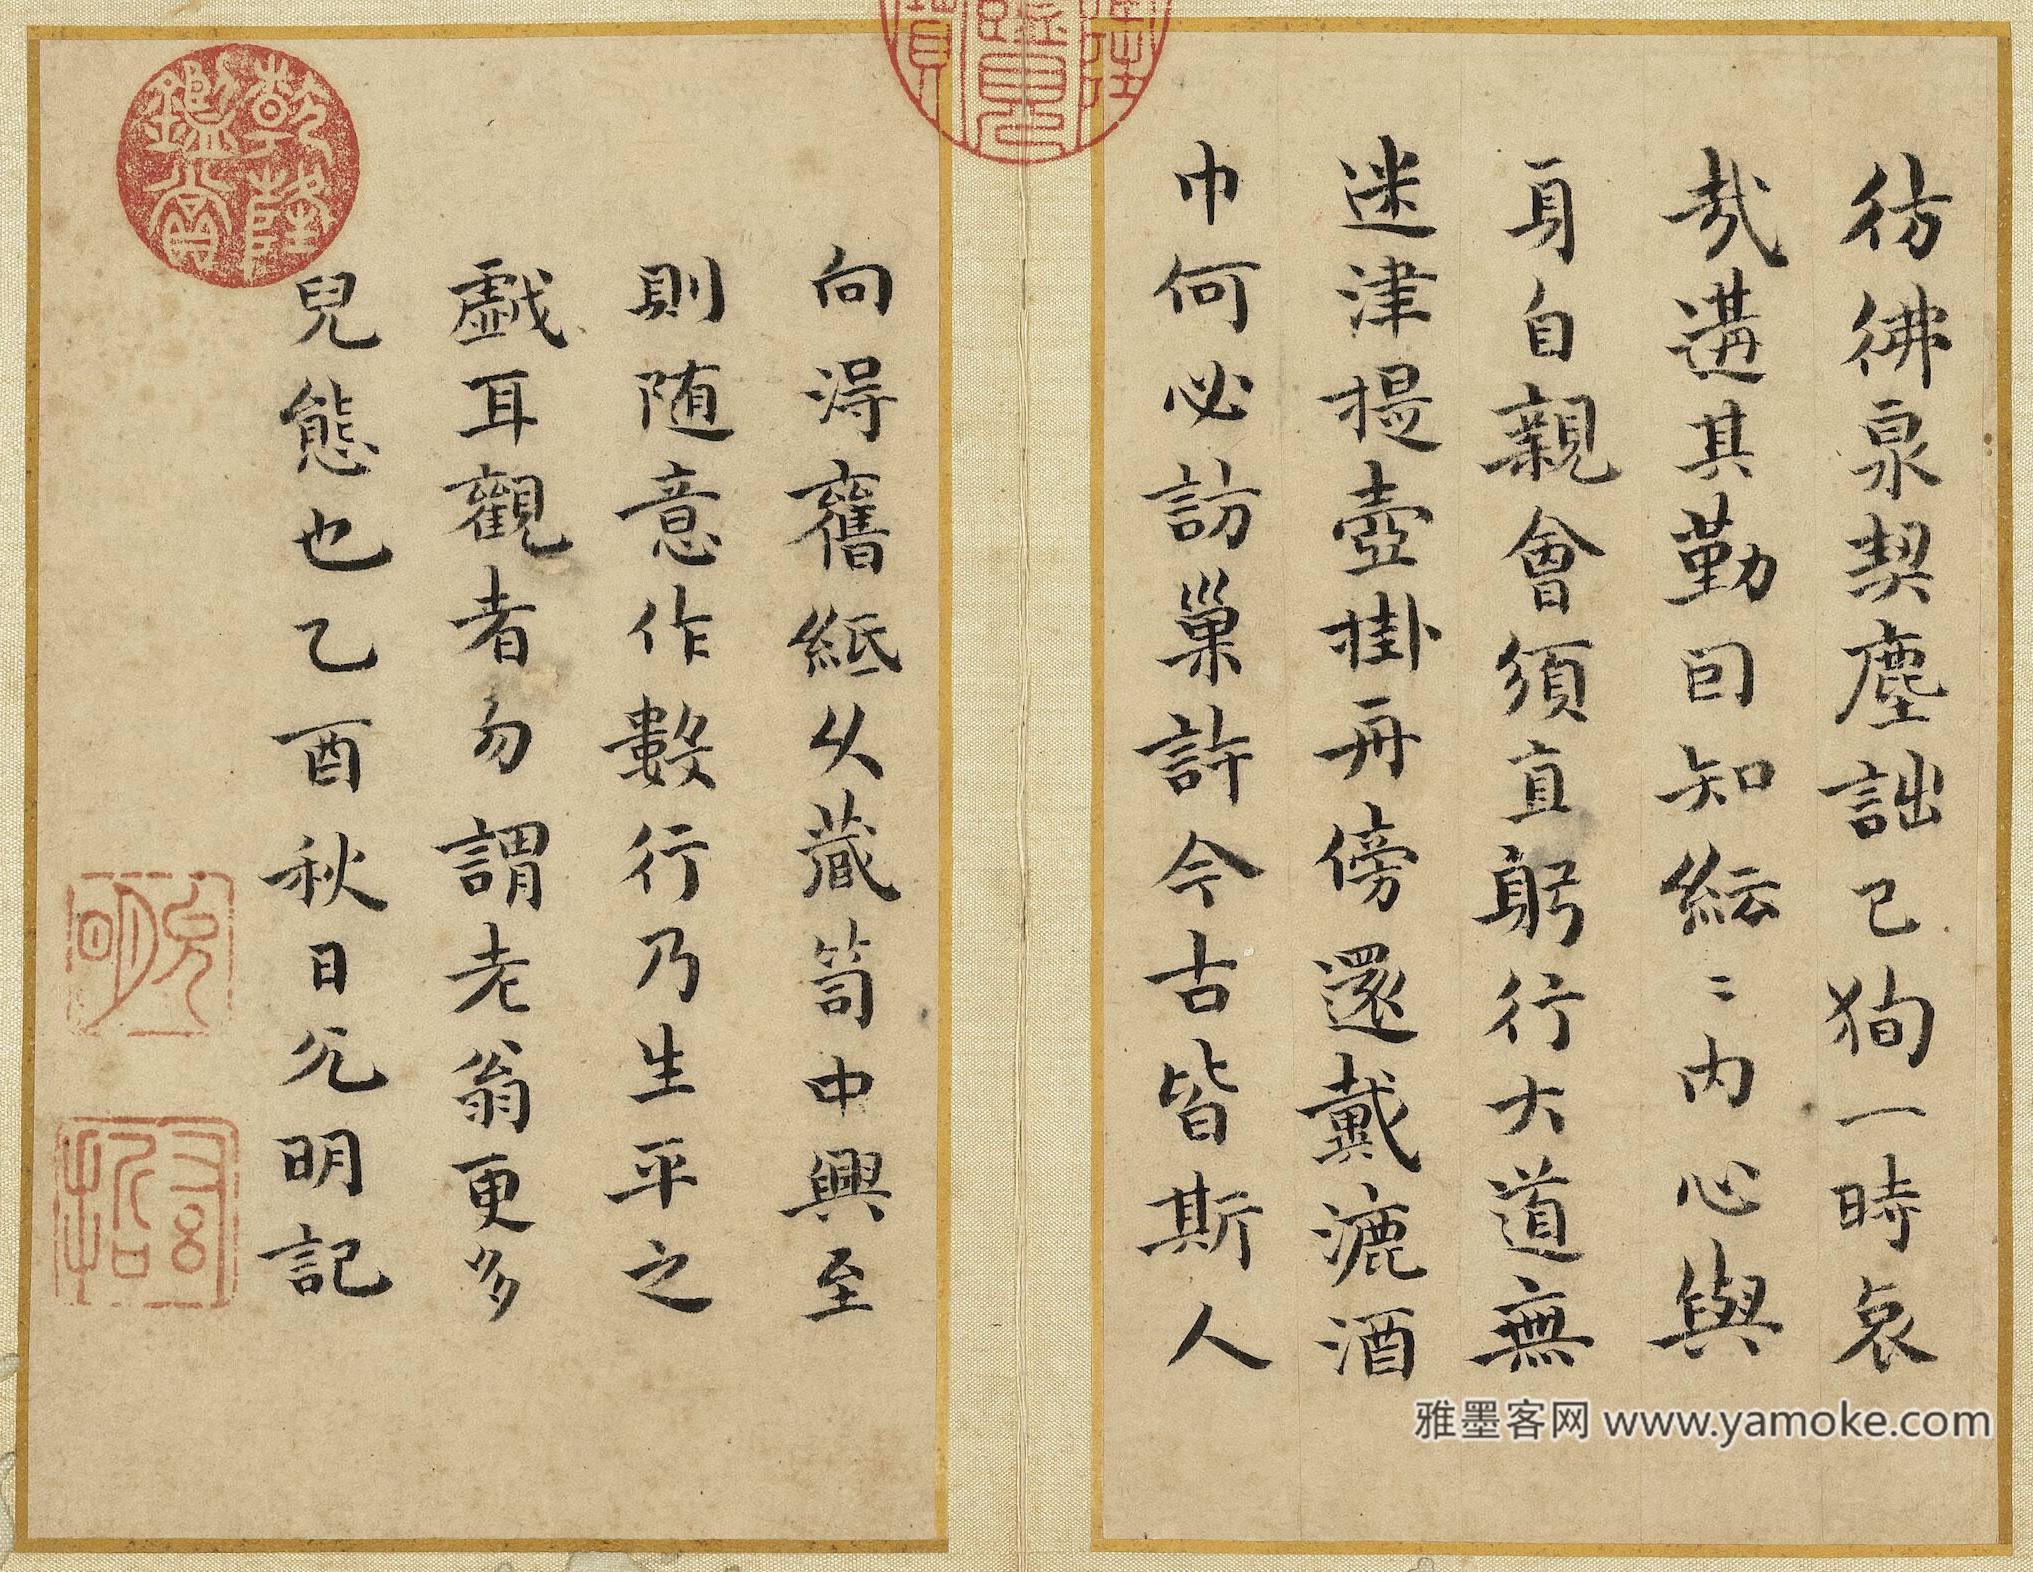 彷彿泉契塵詘已狥一時哀
哉遘其勤囙知紜〻内心與
身自親會須直躬行大道無
迷津提壺掛舟傍還戴漉酒
巾何必訪巢許今古皆斯人
向得舊紙久藏笥中興至
則随意作數行乃生平之
戯耳觀者勿謂老翁更多
兒態也乙酉秋日允明記
乾隆鑑賞
允明
雅墨客网 www.yamoke.com